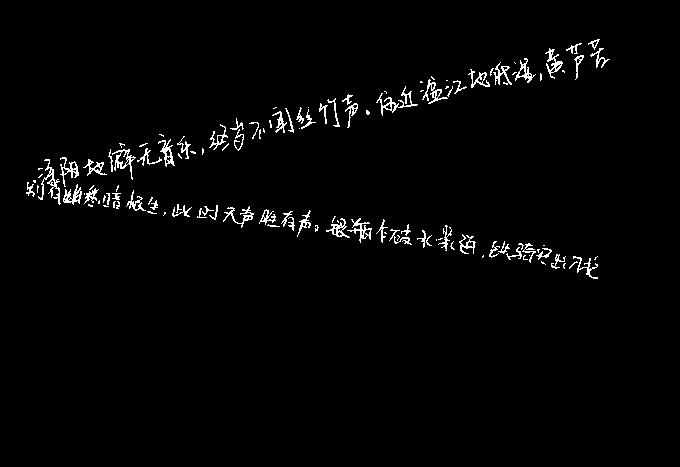 浔阳地僻无音乐，终岁不闻丝竹声。住近湓江地低湿，黄芦苦
别有幽愁暗恨生，此时无声胜有声。银瓶乍破水浆迸，铁骑突出刀枪